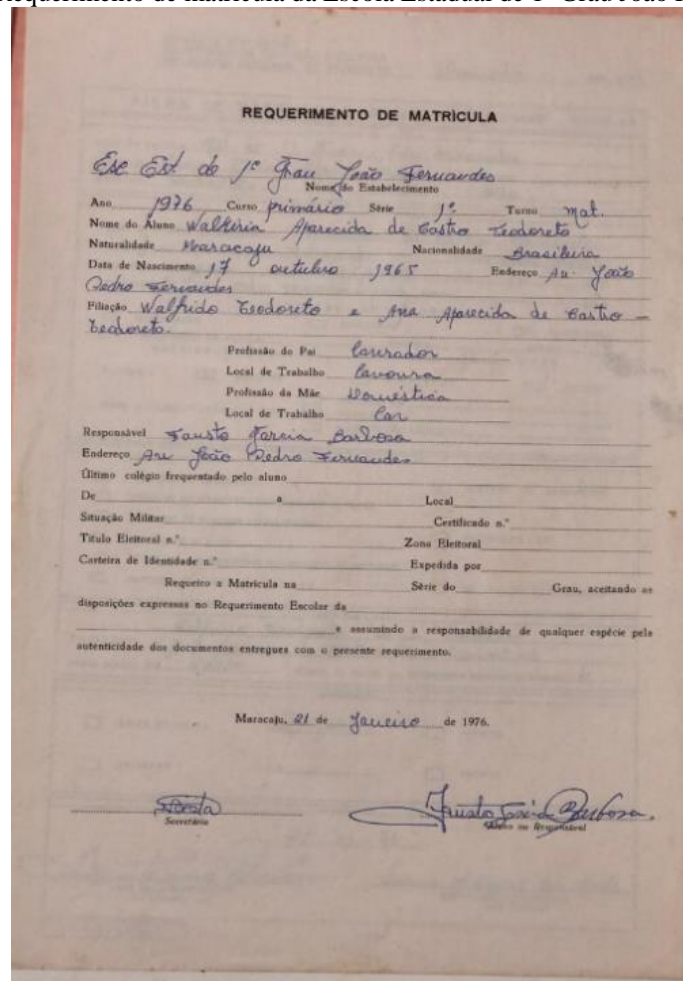 requerimento de matrícula da Escola Estadual de 1º Grau João
REQUERIMENTO DE MATRÍCULA
Esc Est de 1º Grau João Fernandes
Nome do Estabelecimento
Ano 1976 Curso primário Série 1ª Turno mat.
Nome do Aluno Walkiria Aparecida de Castro Teodoreto
Naturalidade Maracaju Nacionalidade Brasileira
Data de Nascimento 17 outubro 1965 Endereço Av. João
Pedro Fernandes
Filiação Walfrido Teodoreto e Ana Aparecida de Castro –
Teodoreto.
Profissão do Pai Lavrador
Local de Trabalho lavoura
Profissão da Mãe Doméstica
Local de Trabalho Lar
Responsável Fausto Garcia Barbosa
Endereço Av João Pedro Fernandes
Último colégio frequentado pelo aluno
De a Local
Situação Militar Certificado n.º
Título Eleitoral n.º Zona Eleitoral
Carteira de Identidade n.º Expedida por
Requeiro a Matrícula na Série do Grau, aceitando as
disposições expressas no Requerimento Escolar da
e assumindo a responsabilidade de qualquer espécie pela
autenticidade dos documentos entregues com o presente requerimento.
Maracaju, 21 de Janeiro de 1976.
Fausto Garcia Barbosa.
Secretária Aluno ou Responsável